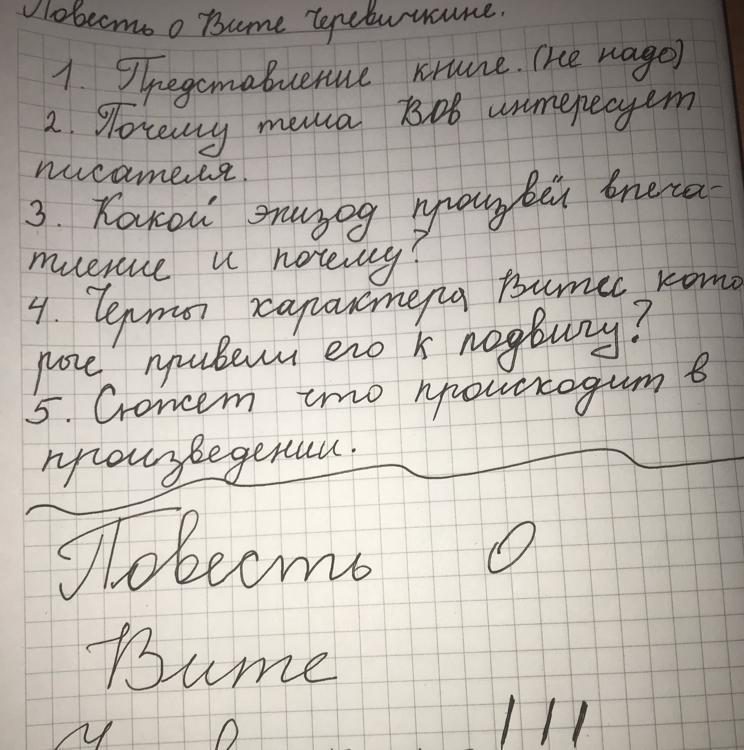 Повесть о Вите Черевичкине.
1. Представление книге. (не надо)
2. Почему тема ВОв интересует
писателя.
3. Какой эпизод произвёл впеча-
тление и почему?
4. Черты характера Витес кото
рые привели его к подвичу?
5. Сюжет что происходит в
произведении.
Повесть о
Вите
!!!